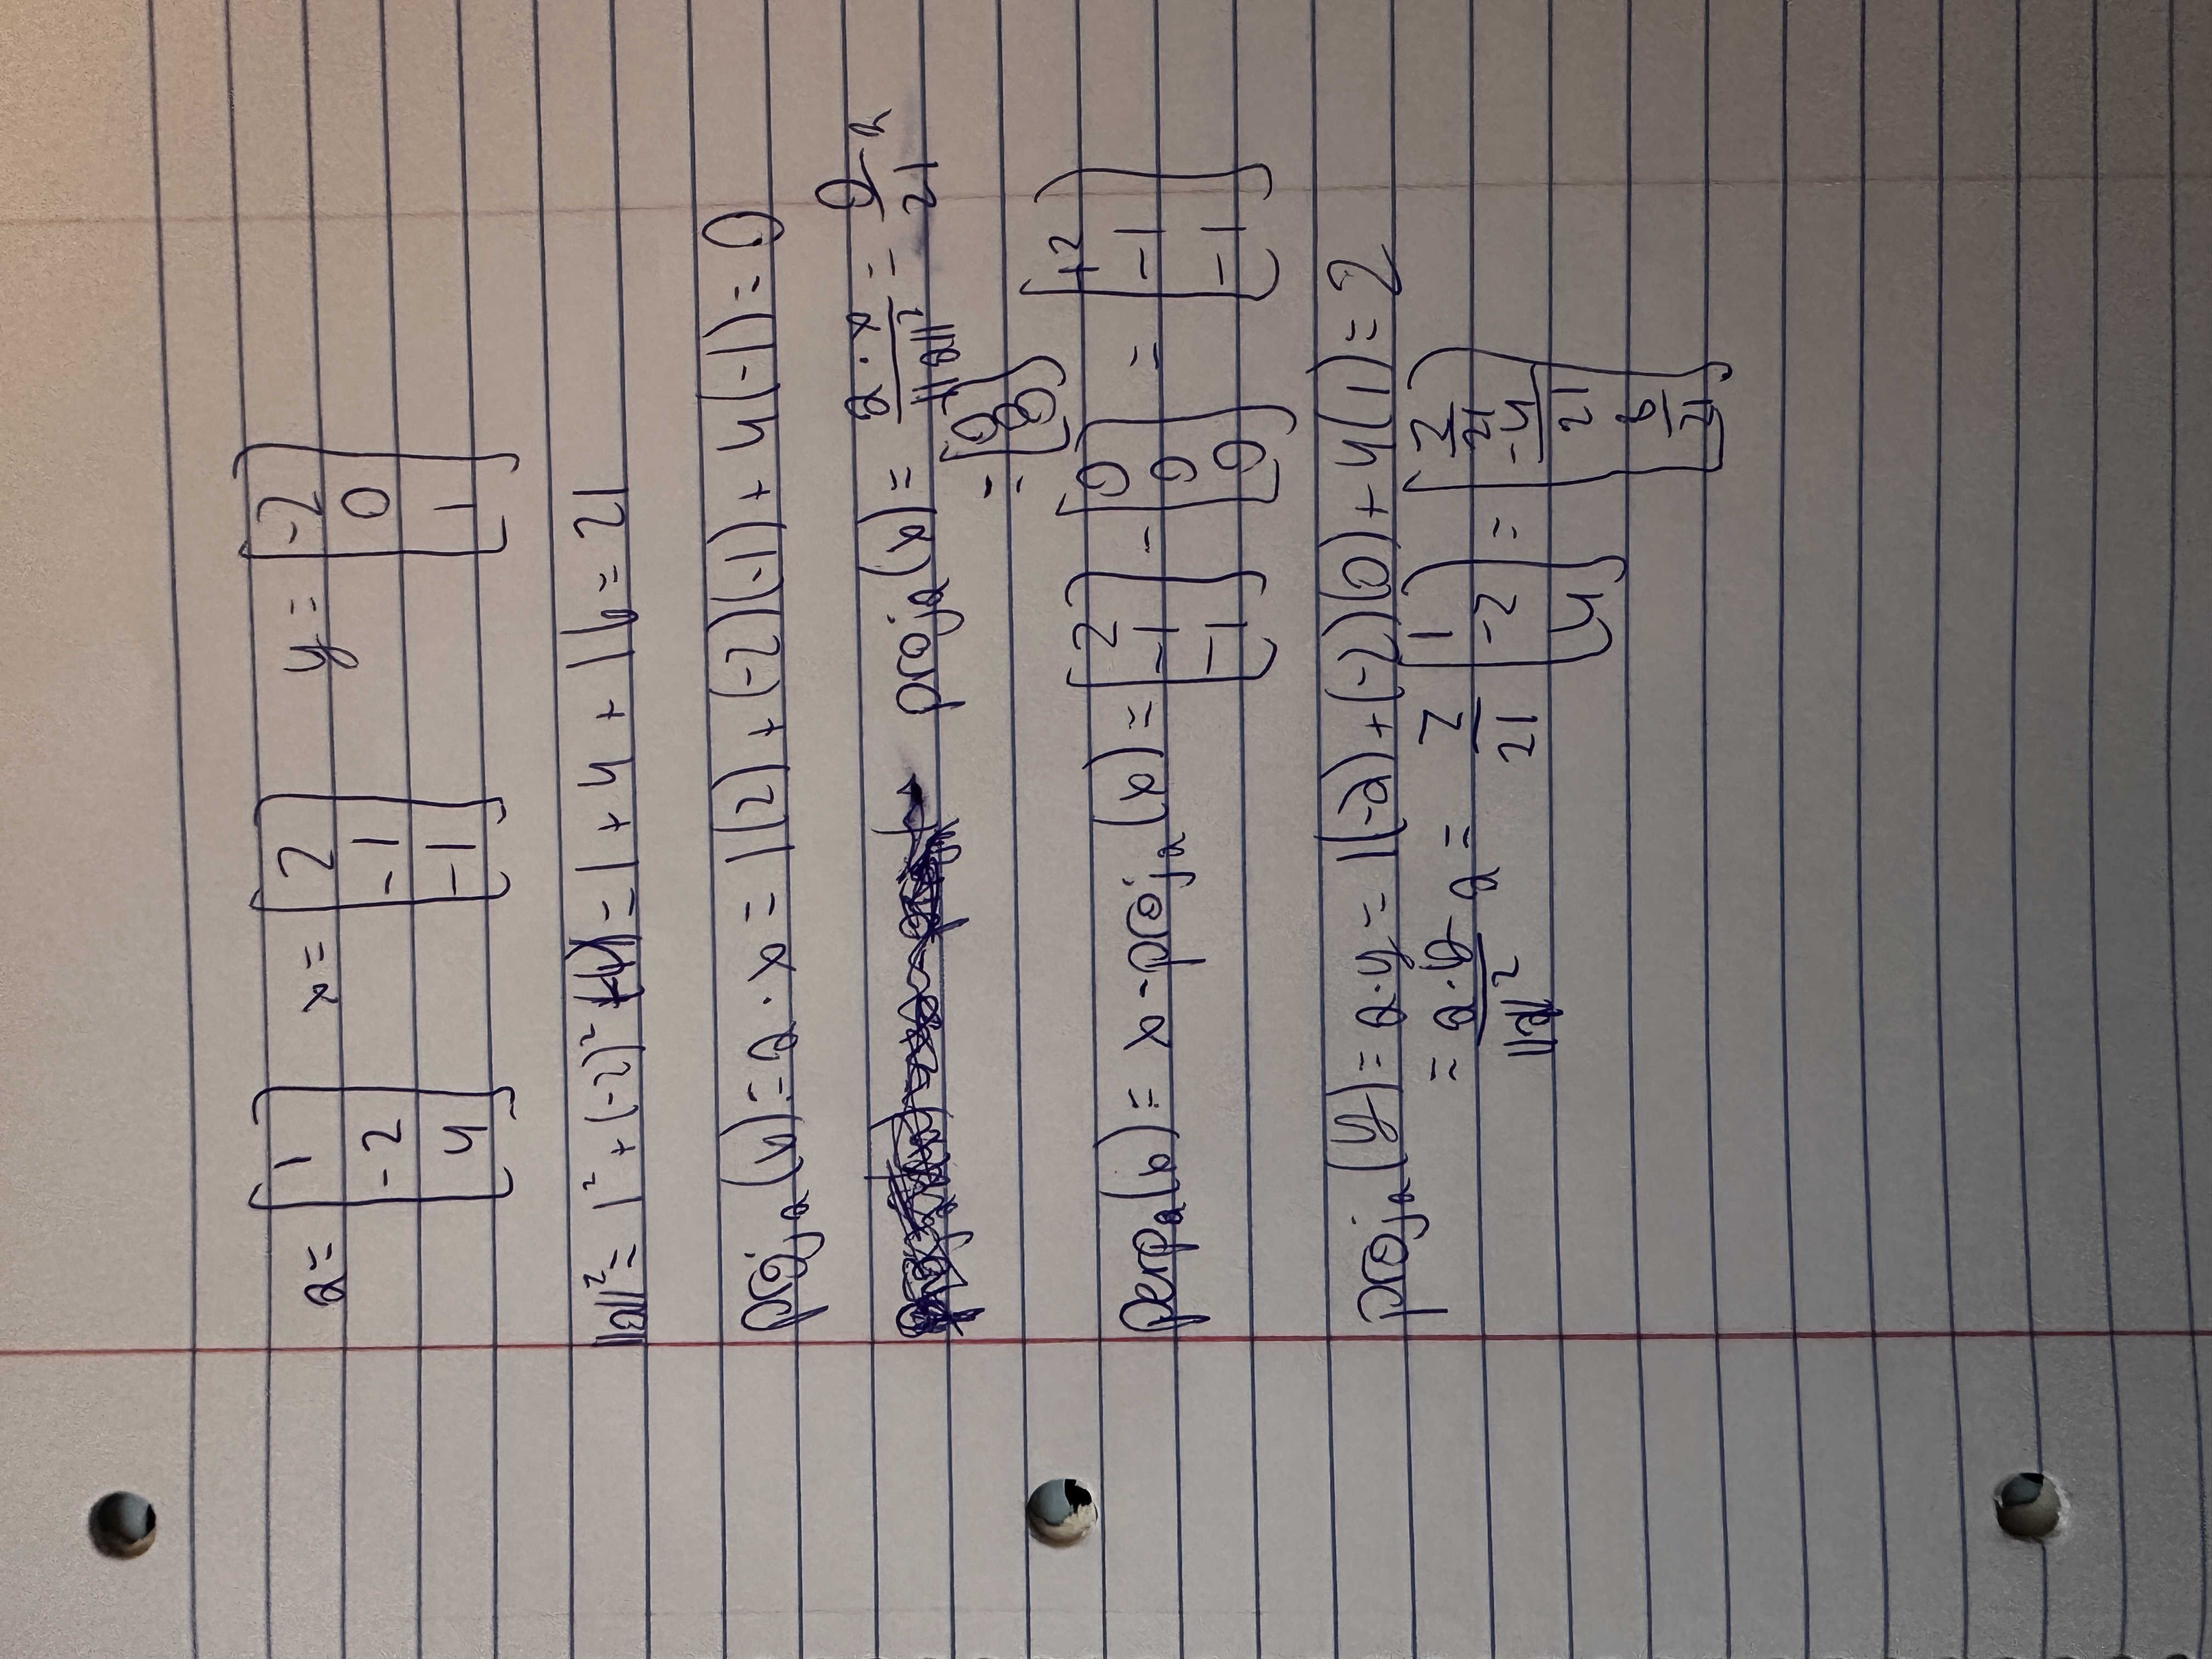 a = [1 -2 4] x = [2 -1 -1] y = [-2 0 1]
||a||² = 1² + (-2)² + (4) = 1 + 4 + 16 = 21
proj_a(x) = a · x = 1(2) + (-2)(-1) + 4(-1) = 0
proj_a(x) = a · x / ||a||² = 0/21 a
= [0 0 0]
perp_a(x) = x - proj_a(x) = [2 -1 -1] - [0 0 0] = [+2 -1 -1]
proj_a(y) = a · y = 1(-2) + (-2)(0) + 4(1) = 2
= a · / ||a||² a = 2/21 [1 -2 4] = [2/21 -4/21 8/21]